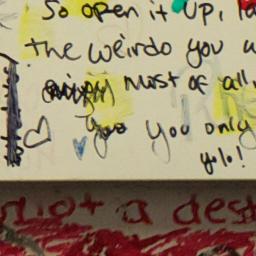 So open it up, la
the weirdo you w
most of all,
you only
yolo!
not a dest